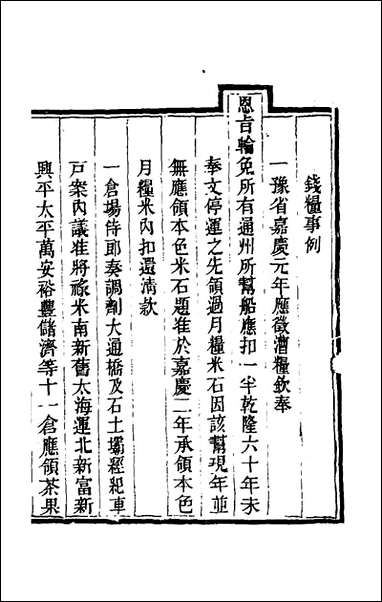 錢糧事例
一豫省嘉慶元年應徵漕糧欽奉
恩旨輪免所有通州所幫船應扣一半乾隆六十年未
奉文停運之先領過月糧米石因該幫現年並
無應領本色米石題准於嘉慶二年承領本色
月糧米內扣還清款
一倉場侍郎奏調劑大通橋及石土壩經紀車
戸案內議准將祿米南新舊太海運北新富新
興平太平萬安裕豐儲濟等十一倉應領茶果